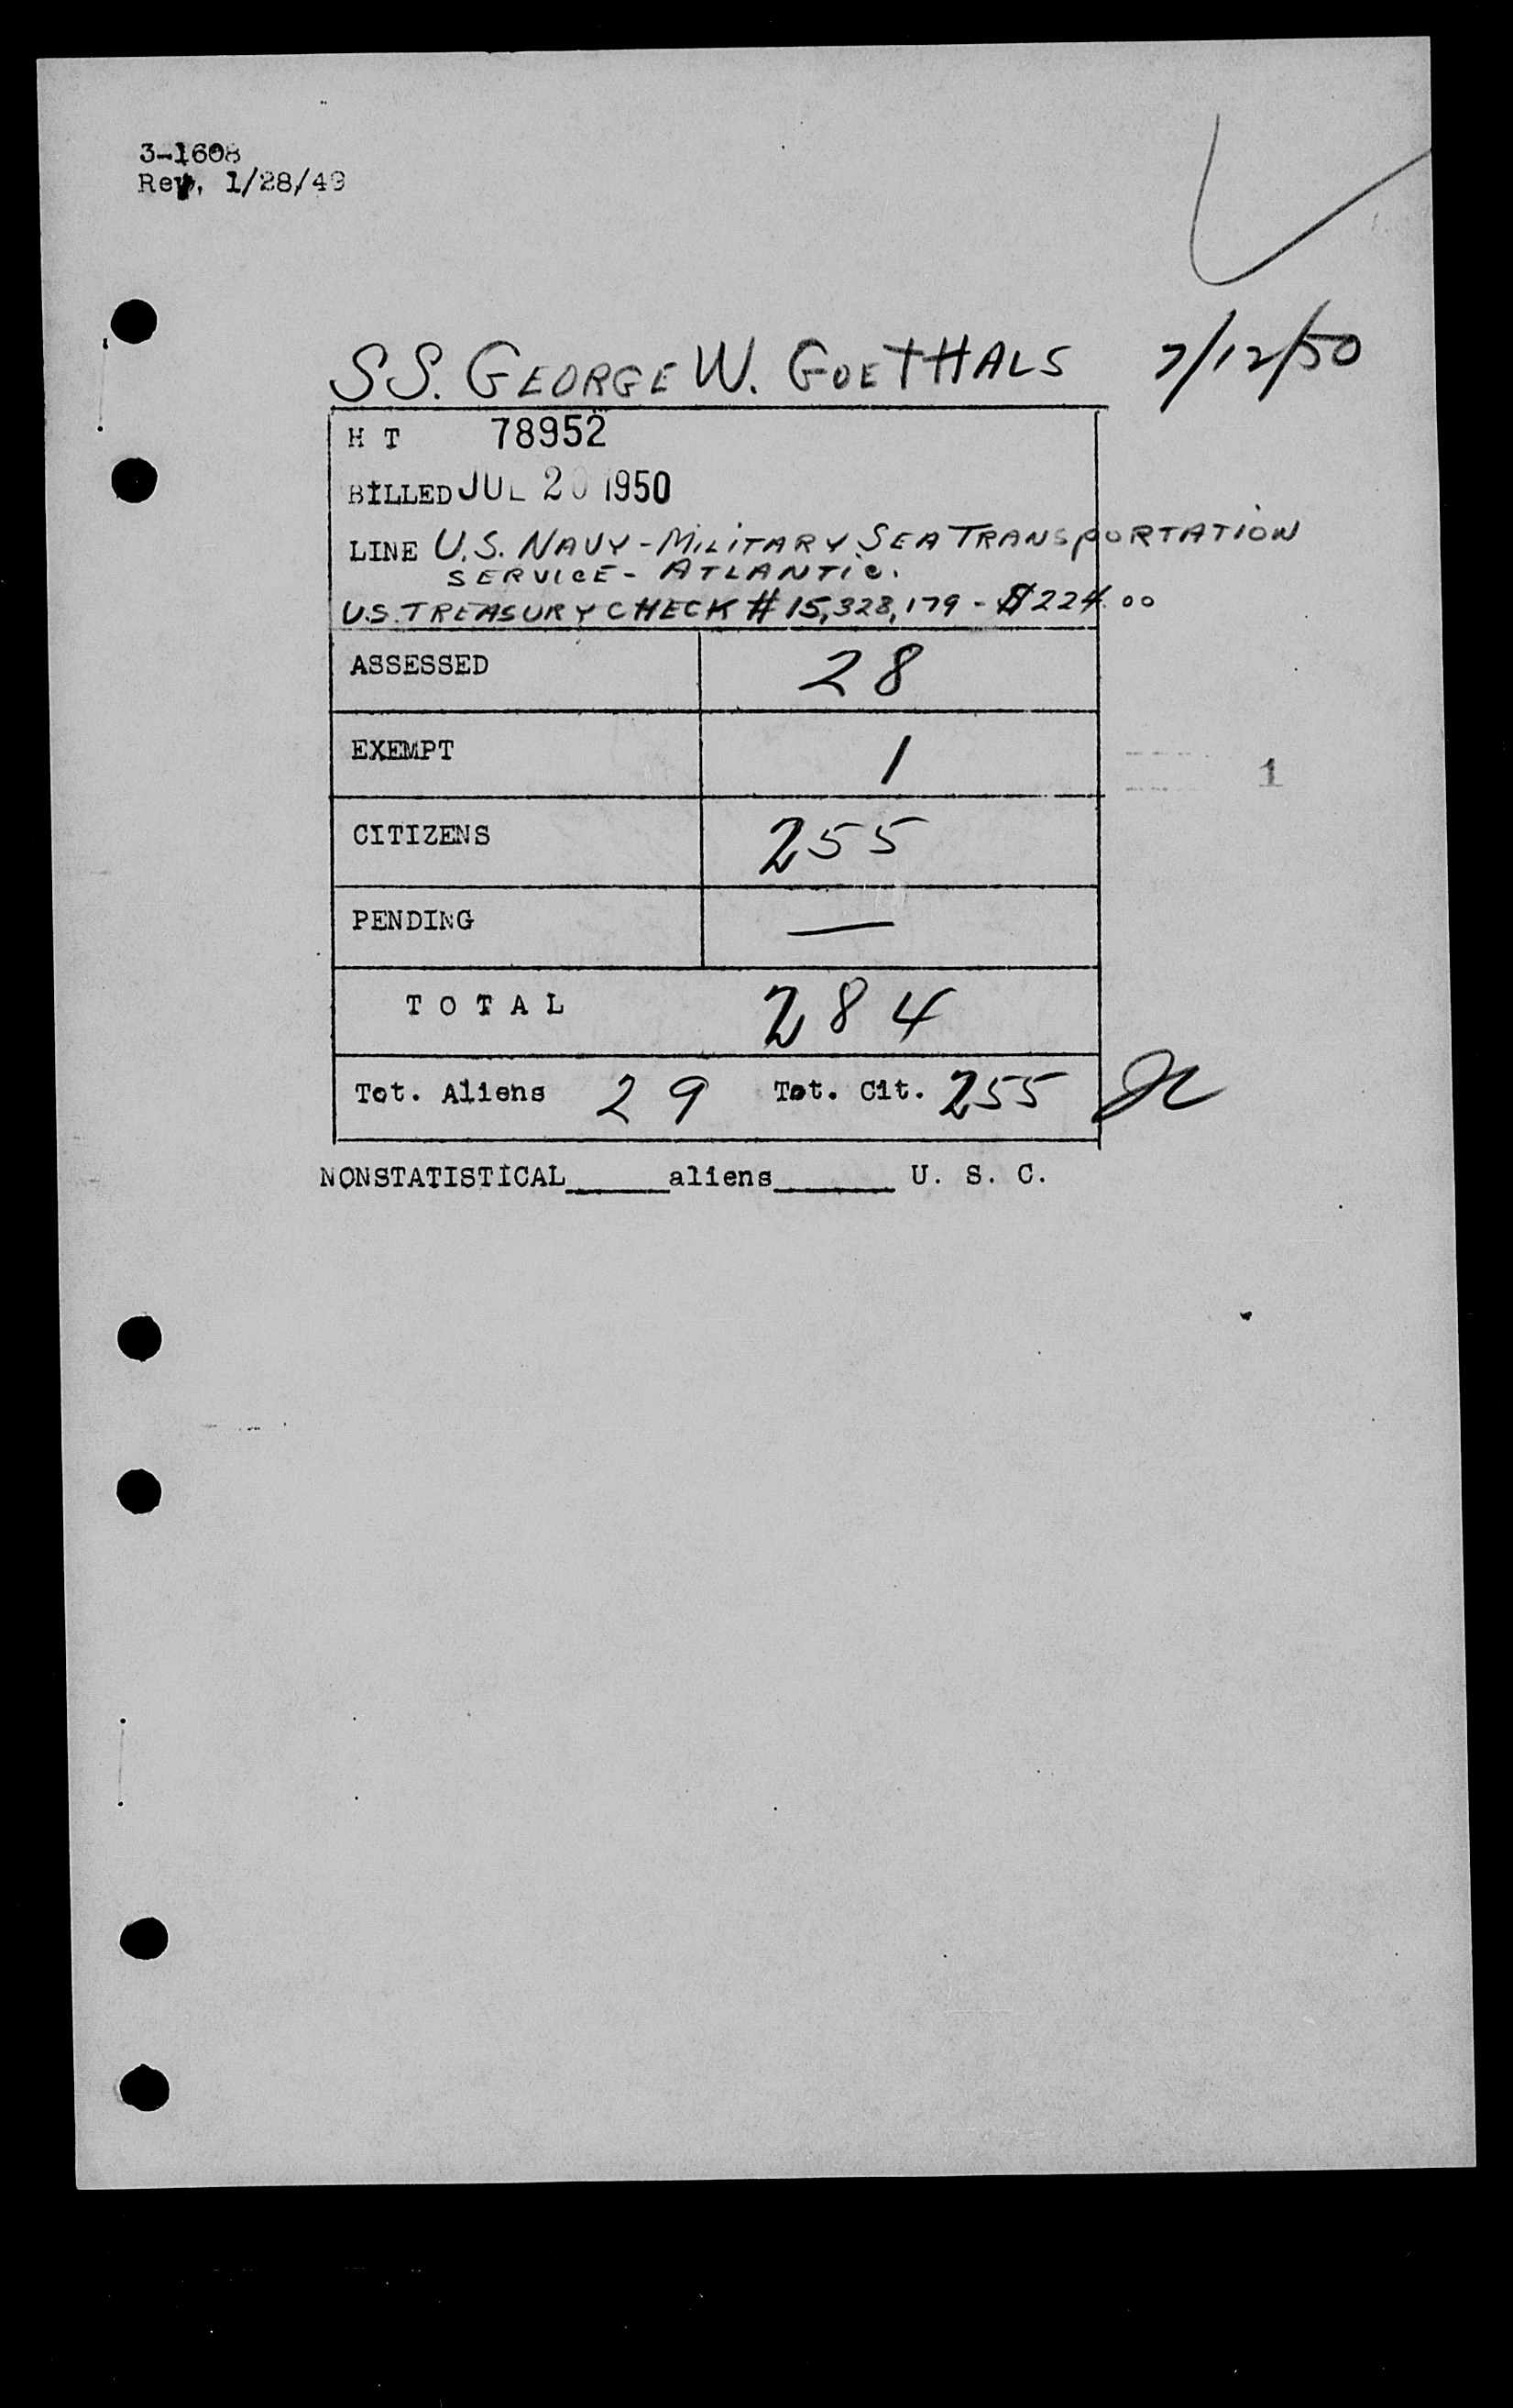 3-1608
Rev. 1/28/49
SS. GEORGE W. GOETHALS 7/12/50
H T 78952
BILLED JUL 20 1950
LINE U.S. NAVY - MILITARY SEA TRANSPORTATION
SERVICE - ATLANTIC.
U.S. TREASURY CHECK # 15,328,179 - $224.00
ASSESSED 28
EXEMPT 1
1
CITIZENS 255
PENDING —
TOTAL 284
Tot. Aliens 29 Tot. Cit. 255
NONSTATISTICAL______aliens_______ U. S. C.